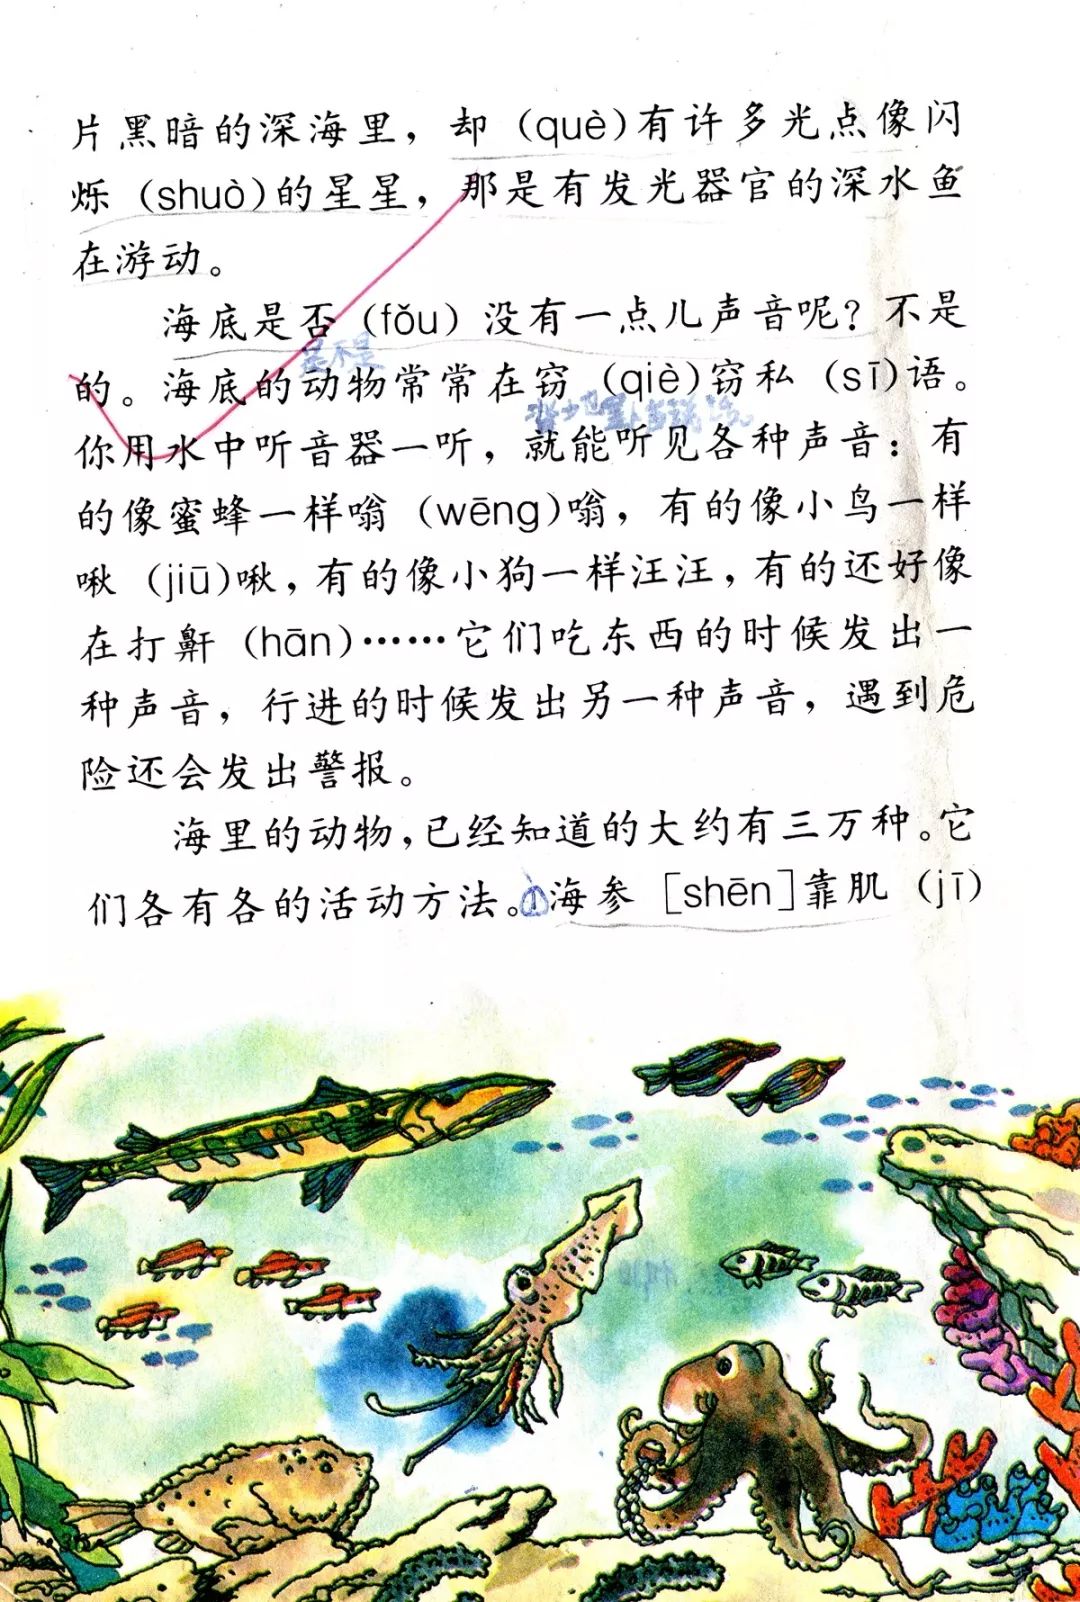 片黑暗的深海里，却（què）有许多光点像闪
烁（shuò）的星星，那是有发光器官的深水鱼
在游动。
海底是否（fǒu）没有一点儿声音呢？不是
是不是
的。海底的动物常常在窃（qiè）窃私（sī）语。
你用水中听音器一听，就能听见各种声音：有
的像蜜蜂一样嗡（wēng）嗡，有的像小鸟一样
啾（jiū）啾，有的像小狗一样汪汪，有的还好像
在打鼾（hān）……它们吃东西的时候发出一
种声音，行进的时候发出另一种声音，遇到危
险还会发出警报。
海里的动物，已经知道的大约有三万种。它
们各有各的活动方法。①海参［shēn］靠肌（jī）